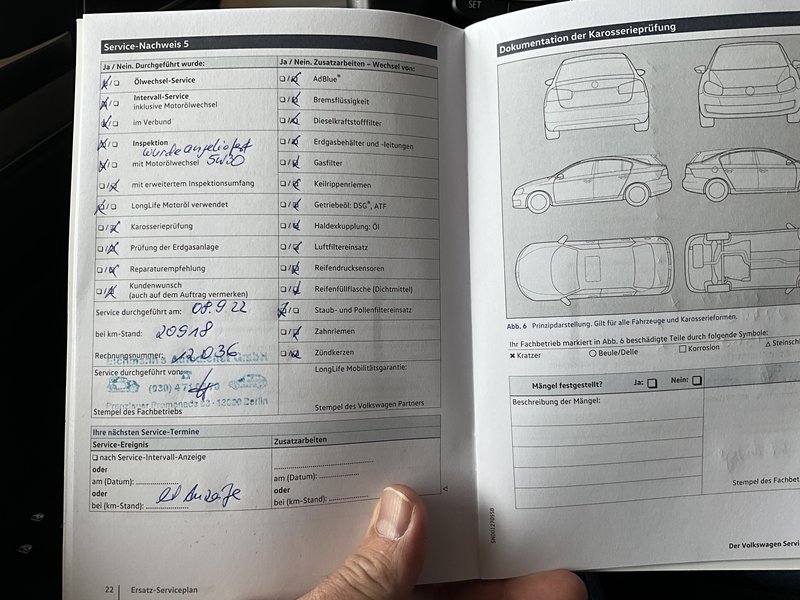 SET
Service-Nachweis 5
Ja / Nein. Durchgeführt wurde:
Ölwechsel-Service
Intervall-Service
inklusive Motorölwechsel
im Verbund
Inspektion
wurde angeliefert
mit Motorölwechsel 5W30
mit erweitertem Inspektionsumfang
LongLife Motoröl verwendet
Karosserieprüfung
Prüfung der Erdgasanlage
Reparaturempfehlung
Kundenwunsch
(auch auf dem Auftrag vermerken)
Service durchgeführt am: 08.9.22
bei km-Stand: 20918
Rechnungsnummer: 12036
Service durchgeführt von:
(030)
Prenzlauer Promenade Berlin
Stempel des Fachbetriebs
Ja / Nein. Zusatzarbeiten – Wechsel von:
AdBlue®
Bremsflüssigkeit
Dieselkraftstofffilter
Erdgasbehälter und -leitungen
Gasfilter
Keilrippenriemen
Getriebeöl: DSG®, ATF
Haldexkupplung: Öl
Luftfiltereinsatz
Reifendrucksensoren
Reifenfüllflasche (Dichtmittel)
Staub- und Pollenfiltereinsatz
Zahnriemen
Zündkerzen
LongLife Mobilitätsgarantie:
Stempel des Volkswagen Partners
Ihre nächsten Service-Termine
Service-Ereignis
nach Service-Intervall-Anzeige
oder
am (Datum):
oder
bei (km-Stand):
Anzeige
Zusatzarbeiten
am (Datum):
oder
bei (km-Stand):
22 Ersatz-Serviceplan
Dokumentation der Karosserieprüfung
Abb. 6 Prinzipdarstellung. Gilt für alle Fahrzeuge und Karosserieformen.
Ihr Fachbetrieb markiert in Abb. 6 beschädigte Teile durch folgende Symbole:
Kratzer Beule/Delle Korrosion Steinschl
Mängel festgestellt? Ja: Nein:
Beschreibung der Mängel:
Stempel des Fachbet
Der Volkswagen Servi